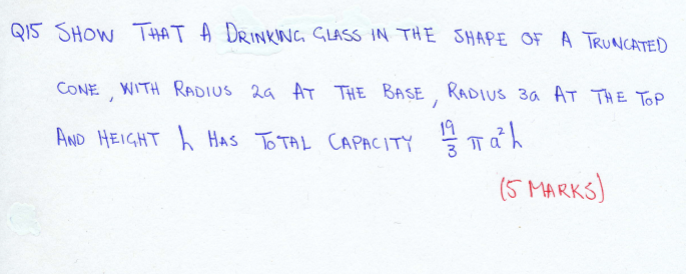 Q15 SHOW THAT A DRINKING GLASS IN THE SHAPE OF A TRUNCATED
CONE, WITH RADIUS 2a AT THE BASE, RADIUS 3a AT THE TOP
AND HEIGHT h HAS TOTAL CAPACITY 19/3 π a²h
(5 MARKS)